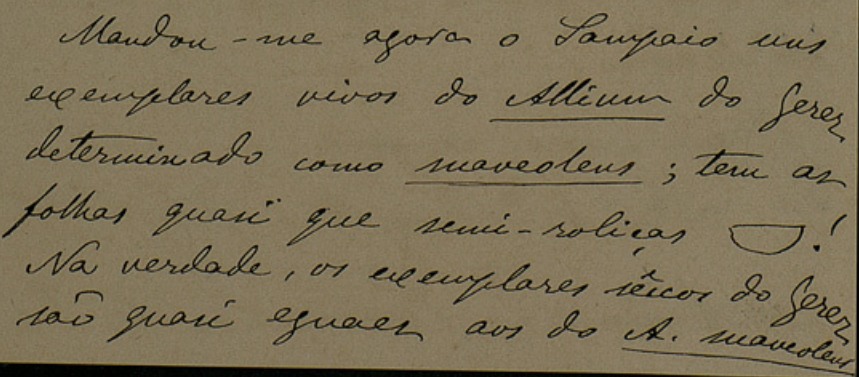 Mandou-me agora o Sampaio uns
exemplares vivos do Allium do Gerez
determinado como suaveolens; tem as
folhas quasi que semi-roliças !
Na verdade, os exemplares sêcos do Gerez
são quasi eguaes aos do A. suaveolens